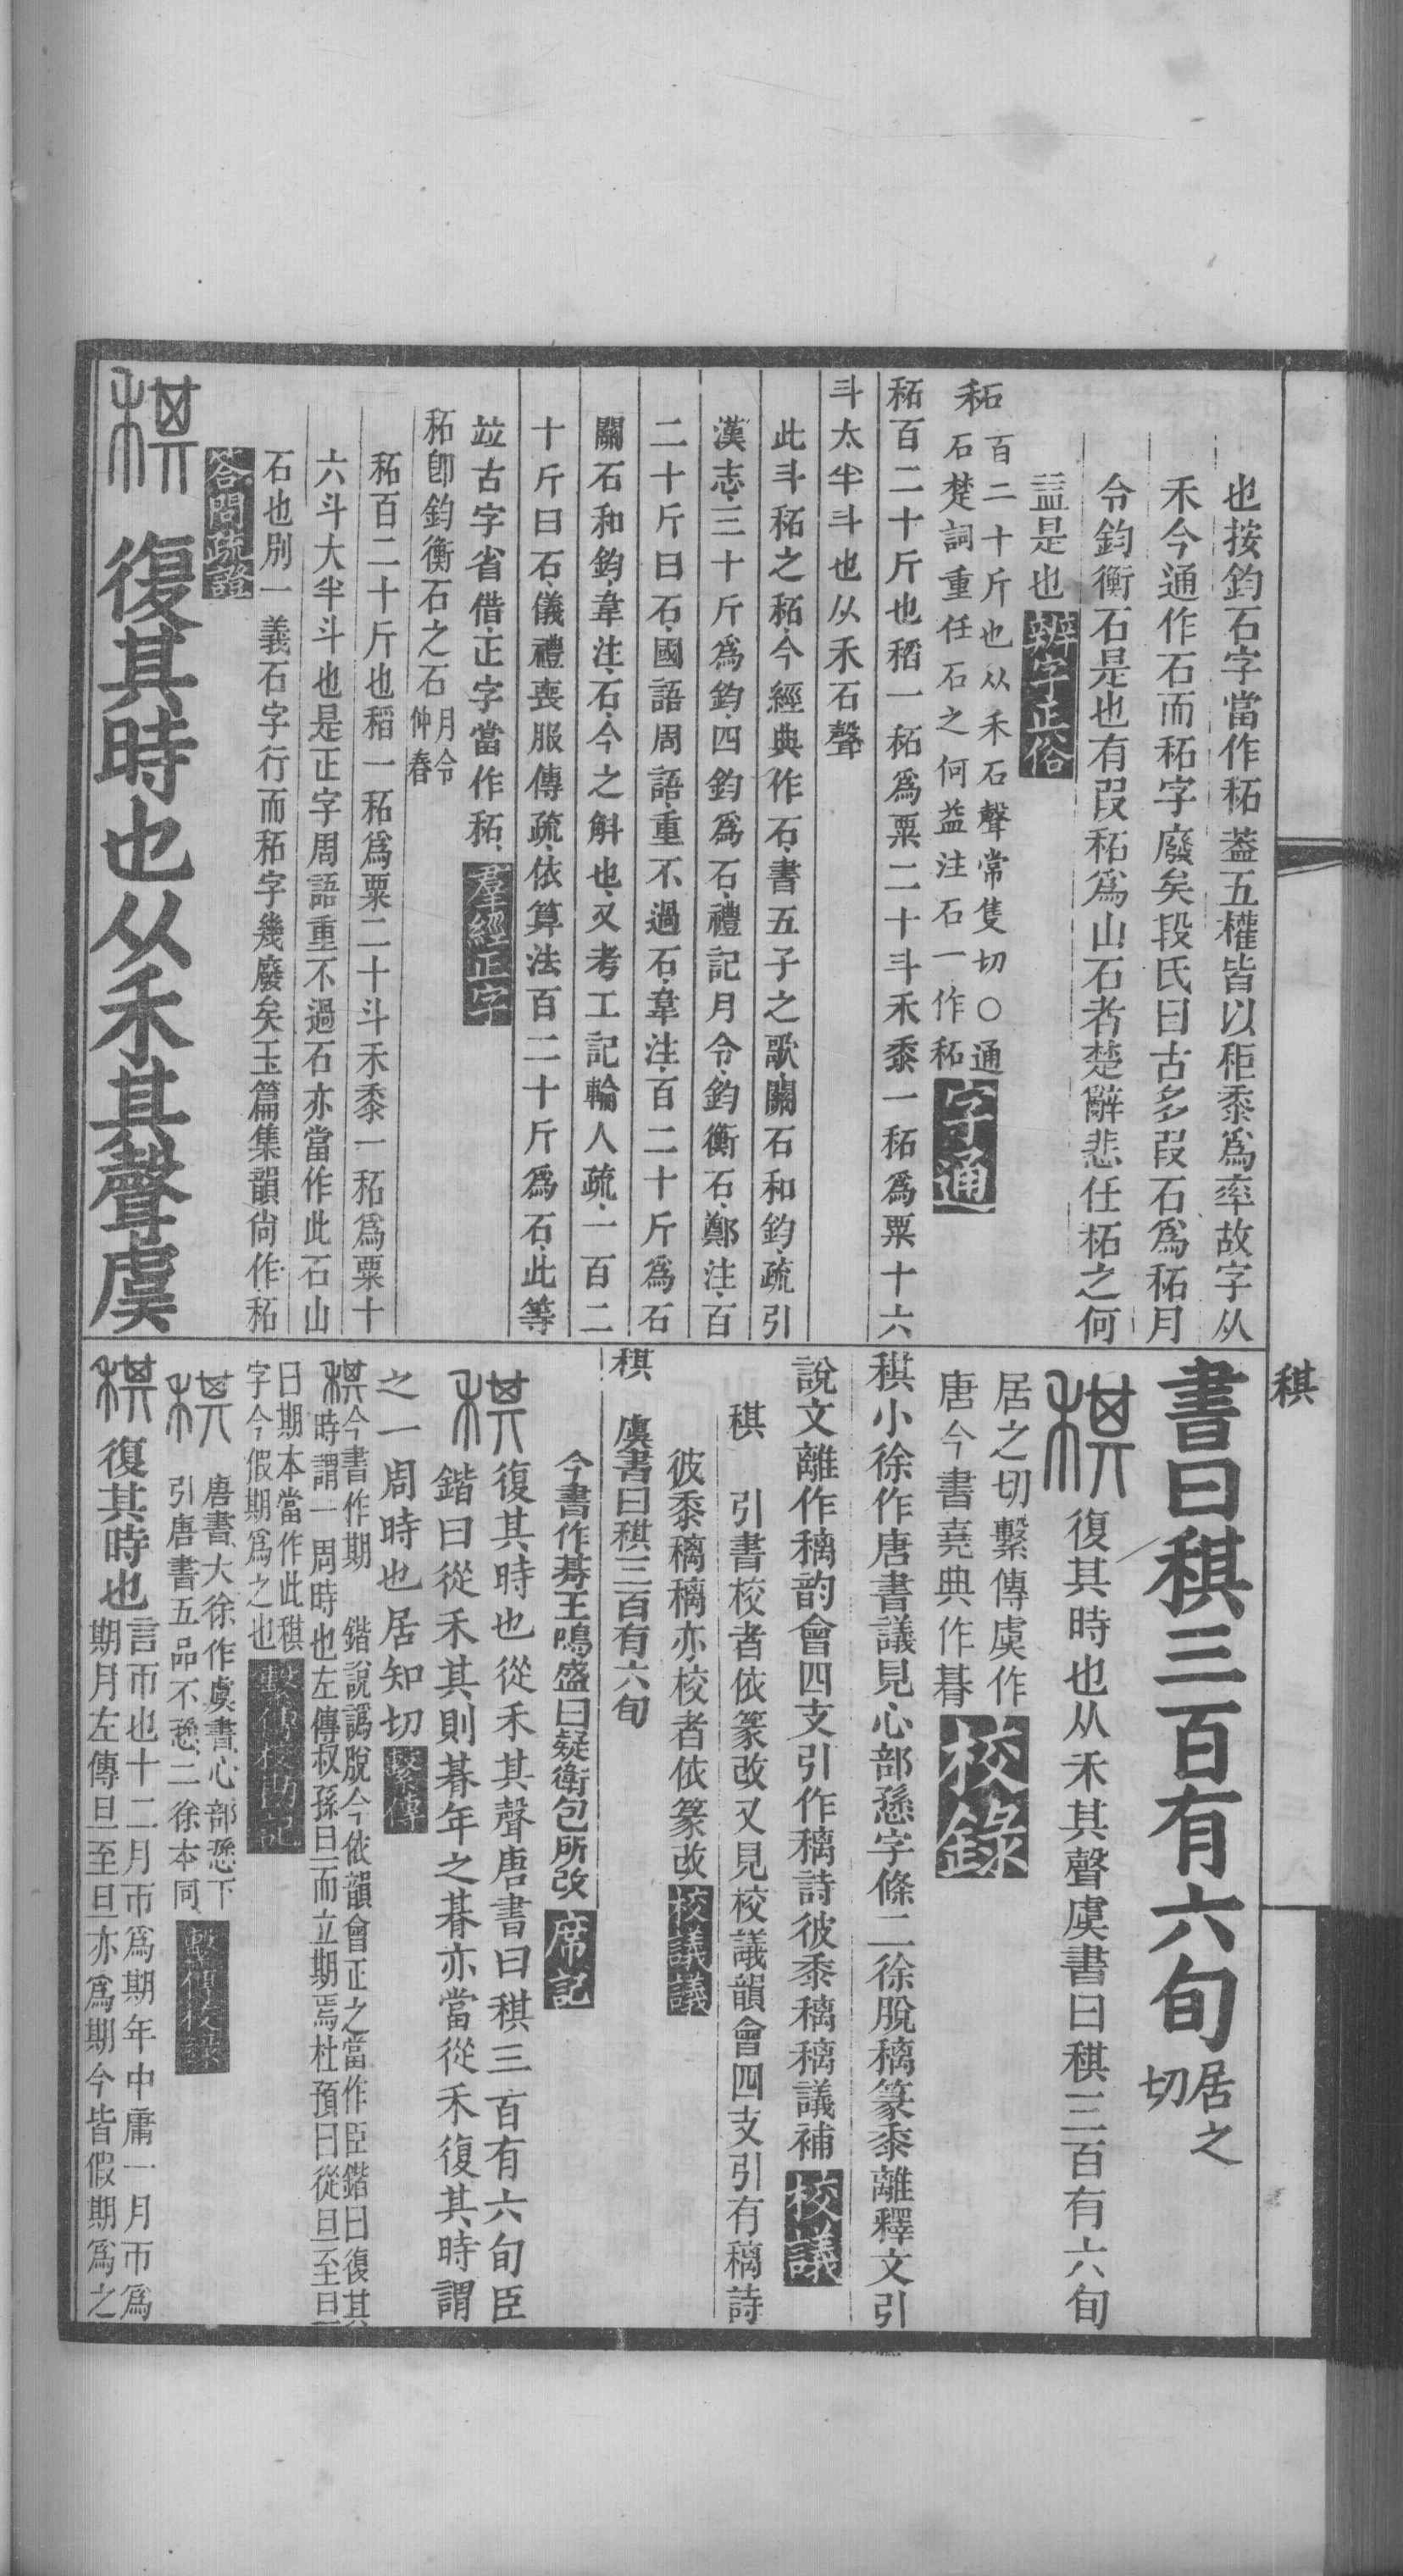 也按鈞石字當作䄷葢五權皆以秬黍爲率故字从
禾今通作石而䄷字廢矣段氏曰古多叚石爲䄷月
令鈞衡石是也有叚䄷爲山石者楚辭悲任䄷之何
益是也辨字正俗
䄷百二十斤也从禾石聲常隻切○通
石楚詞重任石之何益注石一作䄷字通
䄷百二十斤也稻一䄷爲粟二十斗禾黍一䄷爲粟十六
斗太半斗也从禾石聲
此斗䄷之䄷今經典作石書五子之歌關石和鈞疏引
漢志三十斤爲鈞四鈞爲石禮記月令鈞衡石鄭注百
二十斤曰石國語周語重不過石韋注百二十斤爲石
關石和鈞韋注石今之斛也又考工記輪人疏一百二
十斤曰石儀禮喪服傳疏依算法百二十斤爲石此等
竝古字省借正字當作䄷羣經正字
䄷卽鈞衡石之石月令
仲春
䄷百二十斤也稻一䄷爲粟二十斗禾黍一䄷爲粟十
六斗大半斗也是正字周語重不過石亦當作此石山
石也別一義石字行而䄷字幾廢矣玉篇集韻尙作䄷
答問疏證
稘 復其時也从禾其聲虞
稘
書曰稘三百有六旬居之
切
稘 復其時也从禾其聲虞書曰稘三百有六旬
居之切繫傳虞作
唐今書堯典作朞校錄
稘小徐作唐書議見心部愻字條二徐脫穲篆黍離釋文引
說文離作穲韵會四支引作穲詩彼黍穲穲議補校議
稘 引書校者依篆改又見校議韻會四支引有穲詩
彼黍穲穲亦校者依篆改校議議
稘 虞書曰稘三百有六旬
今書作朞王鳴盛曰疑衛包所改席記
稘 復其時也從禾其聲唐書曰稘三百有六旬臣
鍇曰從禾其則朞年之朞亦當從禾復其時謂
之一周時也居知切繫傳
稘今書作期 鍇說譌脫今依韻會正之當作臣鍇曰復其
時謂一周時也左傳叔孫旦而立期焉杜預曰從旦至旦
曰期本當作此稘
字今假期爲之也繫傳校勘記
稘 唐書大徐作虞書心部愻下
引唐書五品不愻二徐本同繫傳校錄
稘 復其時也言帀也十二月帀爲期年中庸一月帀爲
期月左傳旦至旦亦爲期今皆假期爲之